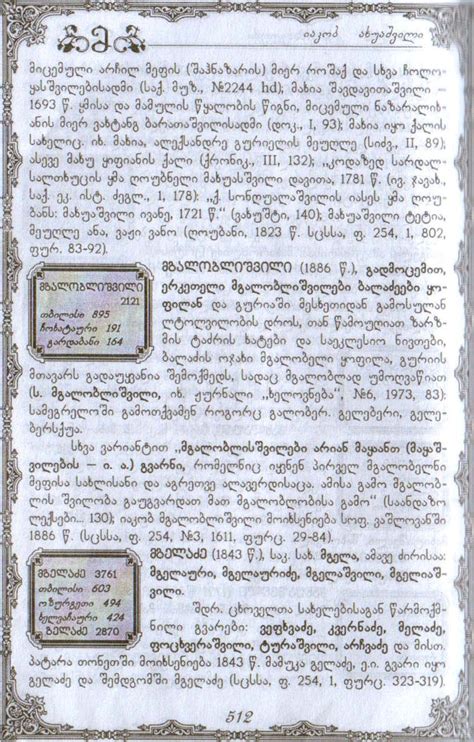 მ
იაკობ ახუაშვილი
მიცემული არჩილ მეფის (შაჰნაზარის) მიერ როშაქ და სხვა ჩოლო-
ყასშვილებისადმი (საქ. მუზ., №2244 hd); მახია შავდავითაშვილი –
1693 წ. ყმისა და მამულის წყალობის წიგნი, მიცემული ნაზარალი-
ხანის მიერ ვახტანგ ბარათაშვილისადმი (დოკ., I, 93); მახია იყო ქალის
სახელიც. იხ. მახია, ალექსანდრე გურიელის მეუღლე (სიძვ., II, 89);
ასევე მახუ ყიფიანის ქალი (ქრონიკ., III, 132); „კოდაზედ სარდალ-
სალთხუცის ყმა ღოუბნელი მახუასშვილი დავითა, 1781 წ. (ივ. ჯავახ.,
საქ. ეკ. ისტ. ძეგლ., I, 178); „ქ. სონღულაშვილის იასეს ყმა ღოუ-
ბანს: მახუაშვილი ივანე, 1721 წ.“ (ვახუშტი, 140); მახუაშვილი ტეტია,
მეუღლე ანა, ვაჟი ვანო (ღოუბანი, 1823 წ. სცსსა, ფ. 254, 1, 802,
ფურ. 83-92).
მგალობლიშვილი
2121
თბილისი 895
ჩოხატაური 191
გარდაბანი 164
მგალობლიშვილი (1886 წ.), გადმოცემით,
ერკეთელი მგალობლიშვილები ბალაძეები ყო-
ფილან და გურიაში მესხეთიდან გამოსულან
ლტოლვილობის დროს, თან წამოუღიათ ზარზ-
მის ტაძრის ხატები და საეკლესიო ნივთები,
ბალაძის ოჯახი მგალობელი ყოფილა, გურიის
მთავარს გადაუყვანია შემოქმედს, სადაც მგალობლად უმოღვაწიათ
(ს. მგალობლიშვილი, იხ. ჟურნალი „ხელოვნება“ №6, 1973, 83);
სამეგრელოში გამოთქვამენ როგორც გალობერ. გელებერი, გელე-
ბერსქუა.
სხვა ვარიანტით „მგალობლისშვილები არიან მაყანთ (მაყაშ-
ვილების – ი. ა.) გვარნი, რომელნიც იყნენ პირველ მგალობელნი
მეფისა სახლისანი და აგრეთვე ალავერდისაცა. ამისა გამო მგალობ-
ლის შვილობა გაუგვარდათ მათ მგალობლობისა გამო“ (საანდაზო
ლექსები... 130); იაკობ მგალობლიშვილი მოიხსენიება სოფ. ვაშლოვანში
1886 წ. (სცსსა, ფ. 254, №3, 1611, ფურც. 29-84).
მგელაძე 3761
თბილისი 603
ოზურგეთი 494
ხელვაჩაური 424
გელაძე 2870
მგელაძე (1843 წ.), საკ. სახ. მგელა, ამავე ძირისაა:
მგელაური, მგელაურიძე, მგელაშვილი, მგელიაშ-
ვილი.
შდრ. ცხოველთა სახელებისაგან წარმოქმ-
ნილი გვარები: ვეფხვაძე, კვერნაძე, მელაძე,
ფოცხვერაშვილი, ტურაშვილი, არჩვაძე და მისთ.
პატარა თონეთში მოიხსენიება 1843 წ. მამუკა გელაძე ე.ი. გვარი იყო
გელაძე და შემდგომში მგელაძე (სცსსა, ფ. 254, 1, ფურც. 323-319).
512